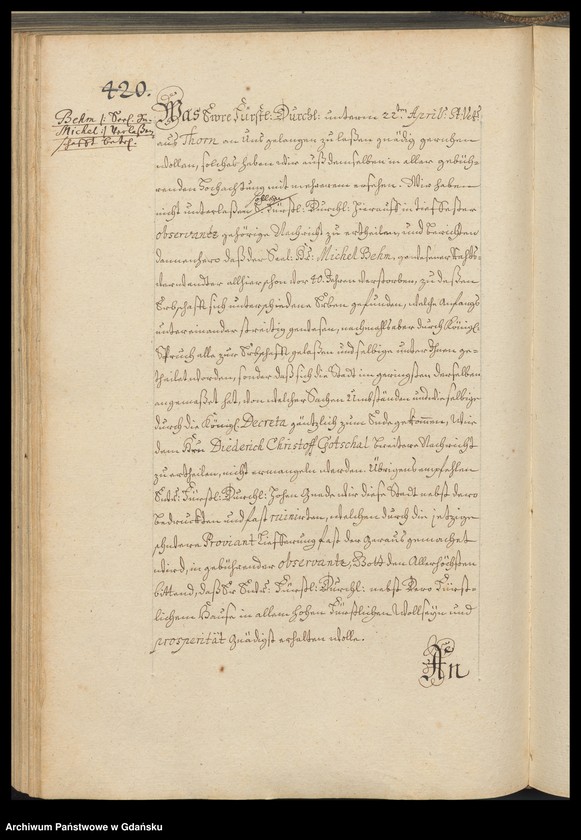 420.
Behm /: Seel: Jn:
Michel :/ Verlaßen-
schafft betr.
Was Ewre Fürstl: Durchl: unterm 22ten April: St. Vet:
aus Thorn an Uns gelangen zu laßen gnädig geruhen
wollen, solches haben wir auß demselben in aller gebüh-
renden Hochachtung mit mehrerem ersehen. Wir haben
nicht unterlaßen sollen E. Fürstl: Durchl: hierauff in tieffester
observantz gehörige Nachricht zu ertheilen, und berichten
demnechst daß der Seel: Hr: Michel Behm, gewesener Raths-
verwandter allhier schon vor 40. Jahren verstorben, zu deßen
Erbschafft sich unterschiedene Erben gefunden, welche Anfangs
untereinander streitig gewesen, nachmahls aber durch Königl:
Spruch alle zur Erbschafft gelaßen und selbige unter Ihnen ge-
theilet worden, sonder daß sich die Stadt im geringsten derselben
angemaßet hat, von welcher Sachen Umbständen und wie selbige
durch die Königl: Decreta gäntzlich zum Ende gekommen, Wir
dem Hrn Diederich Christoff Gotschal breitere Nachricht
zu ertheilen, nicht ermangeln werden. Übrigens empfehlen
Ewr: Fürstl: Durchl: Hohen Gnade wir diese Stadt nebst dero
bedruckten und fast ruinirten, welchen durch die jetzige
schwere Proviant Liefferung fast der garaus gemachet
wird, in gebührender observantz, Gott den Allerhöchsten
bittend, daß Er Ewr: Fürstl: Durchl: nebst Dero Fürst-
lichem Hause in allem hohen Fürstlichen Wollseyn und
prosperität gnädigst erhalten wolle.
An
Archiwum Państwowe w Gdańsku